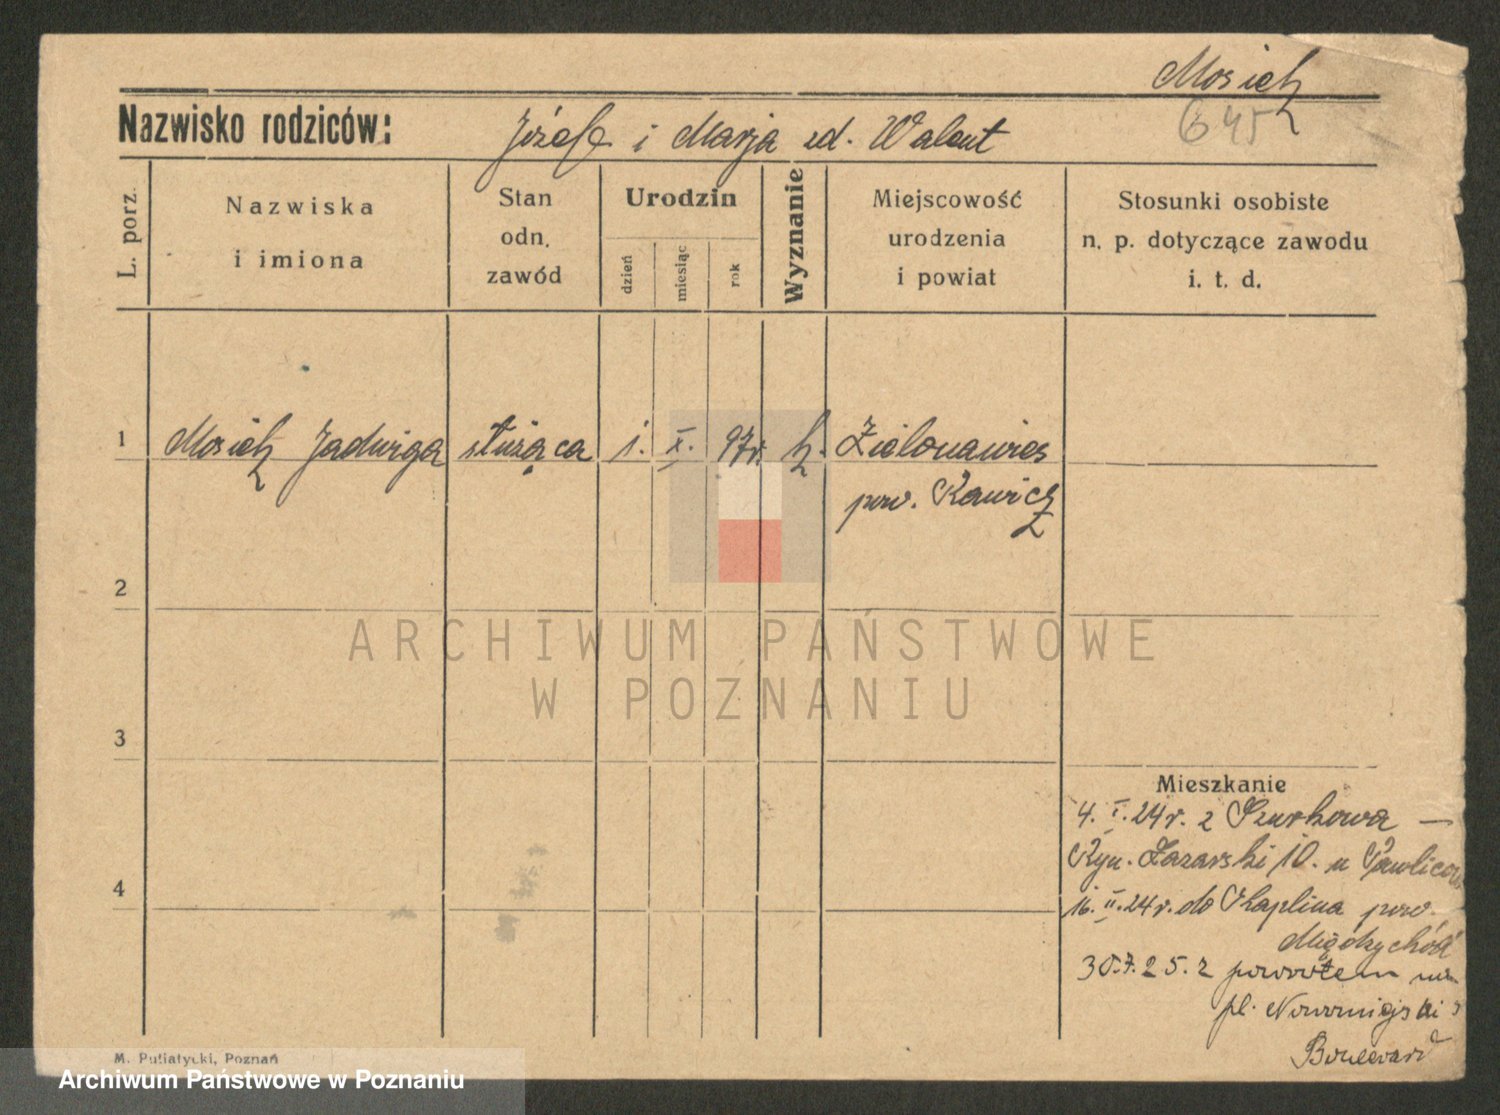 Mosich
645
Nazwisko rodziców: Józef i Marja zd. Walent
L. porz.
Nazwiska
i imiona
Stan
odn.
zawód
Urodzin
dzień
miesiąc
rok
Wyznanie
Miejscowość
urodzenia
i powiat
Stosunki osobiste
n. p. dotyczące zawodu
i. t. d.
1 Jadwiga służąca 1. X. 97r. k. Zielonawies
pow. Rawicz
2
3
4
Mieszkanie
4. I. 24r. z Szurkowa —
Ryn. Łazarski 10. u
16. II. 24r. do Kaplina pow.
Międzychód
30.7.25. z powrotem
pl. Nowomiejski
M. Putiatycki, Poznań
ARCHIWUM PAŃSTWOWE
W POZNANIU
Archiwum Państwowe w Poznaniu